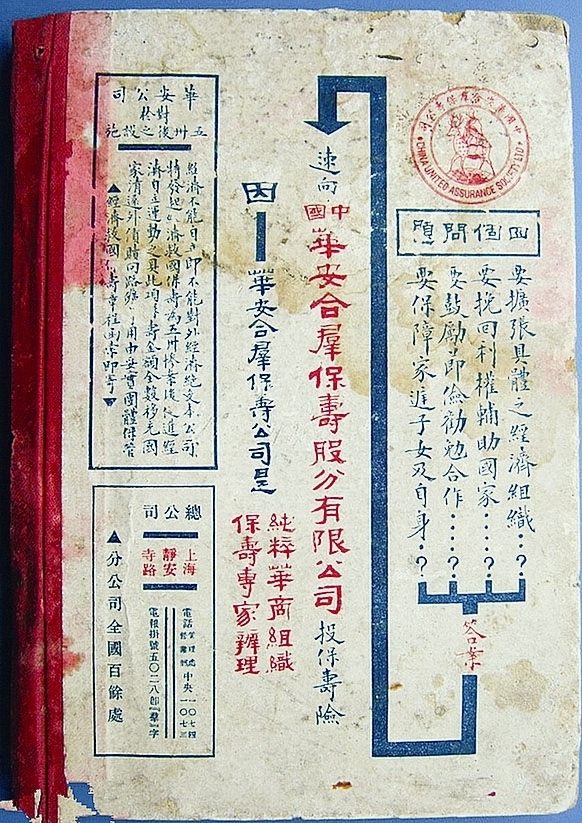 CHINA UNITED ASSURANCE SOCIETY LTD
四個問題
要擴張具體之經濟組織..?
要挽回利權輔助國家....?
要鼓勵節儉勸勉合作.....?
要保障家庭子女及自身.?
答案
速向中國華安合羣保壽股分有限公司投保壽險
因—華安合羣保壽公司是
純粹華商組織
保壽專家辦理
華安公司
對於
五卅後之設施
經濟不能自立即不能對外經濟絕交本公司
特發起經濟救國保壽為五卅慘案後促進經
濟自立運動之具此項保壽金額全數移充國
家清還外債贖回路礦之用由妥實團體保管
▲經濟救國保壽章程函索即寄▼
總公司
上海
靜安
寺路
電話 中央 一〇七四
一〇七三
電報掛號五〇二八即『羣』字
▲分公司全國百餘處